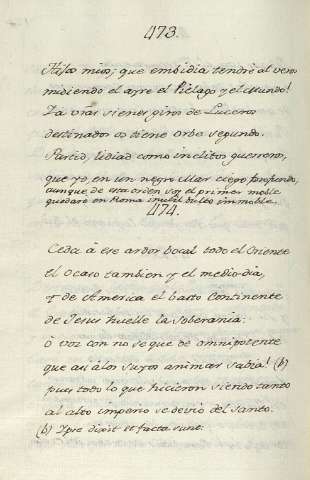 473.
Hijos mios; que embidia tendrè al veros
midiendo el ayre el Pielago y el Mundo!
Ya vrãs sienes giros de Luceros
destinados os tiene orbe segundo.
Partid, lidiad como inclitos guerreros,
que yo en un negro Mar ciego profundo,
aunque de esta orden soy el primer moble
quedarè en Roma inutil bulto immoble.
474.
Ceda à ese ardor bocal todo el Oriente
el Ocaso tambien y el medio dia,
y de America el basto Continente
de Jesus huelle la Soberanìa:
ò voz con no se que de omnipotente
que asi à los suyos animar sabia! (b)
pues todo lo que hicieron siendo tanto
al alto imperio se deviò del Santo.
(b) Ipse dixit et facta sunt.